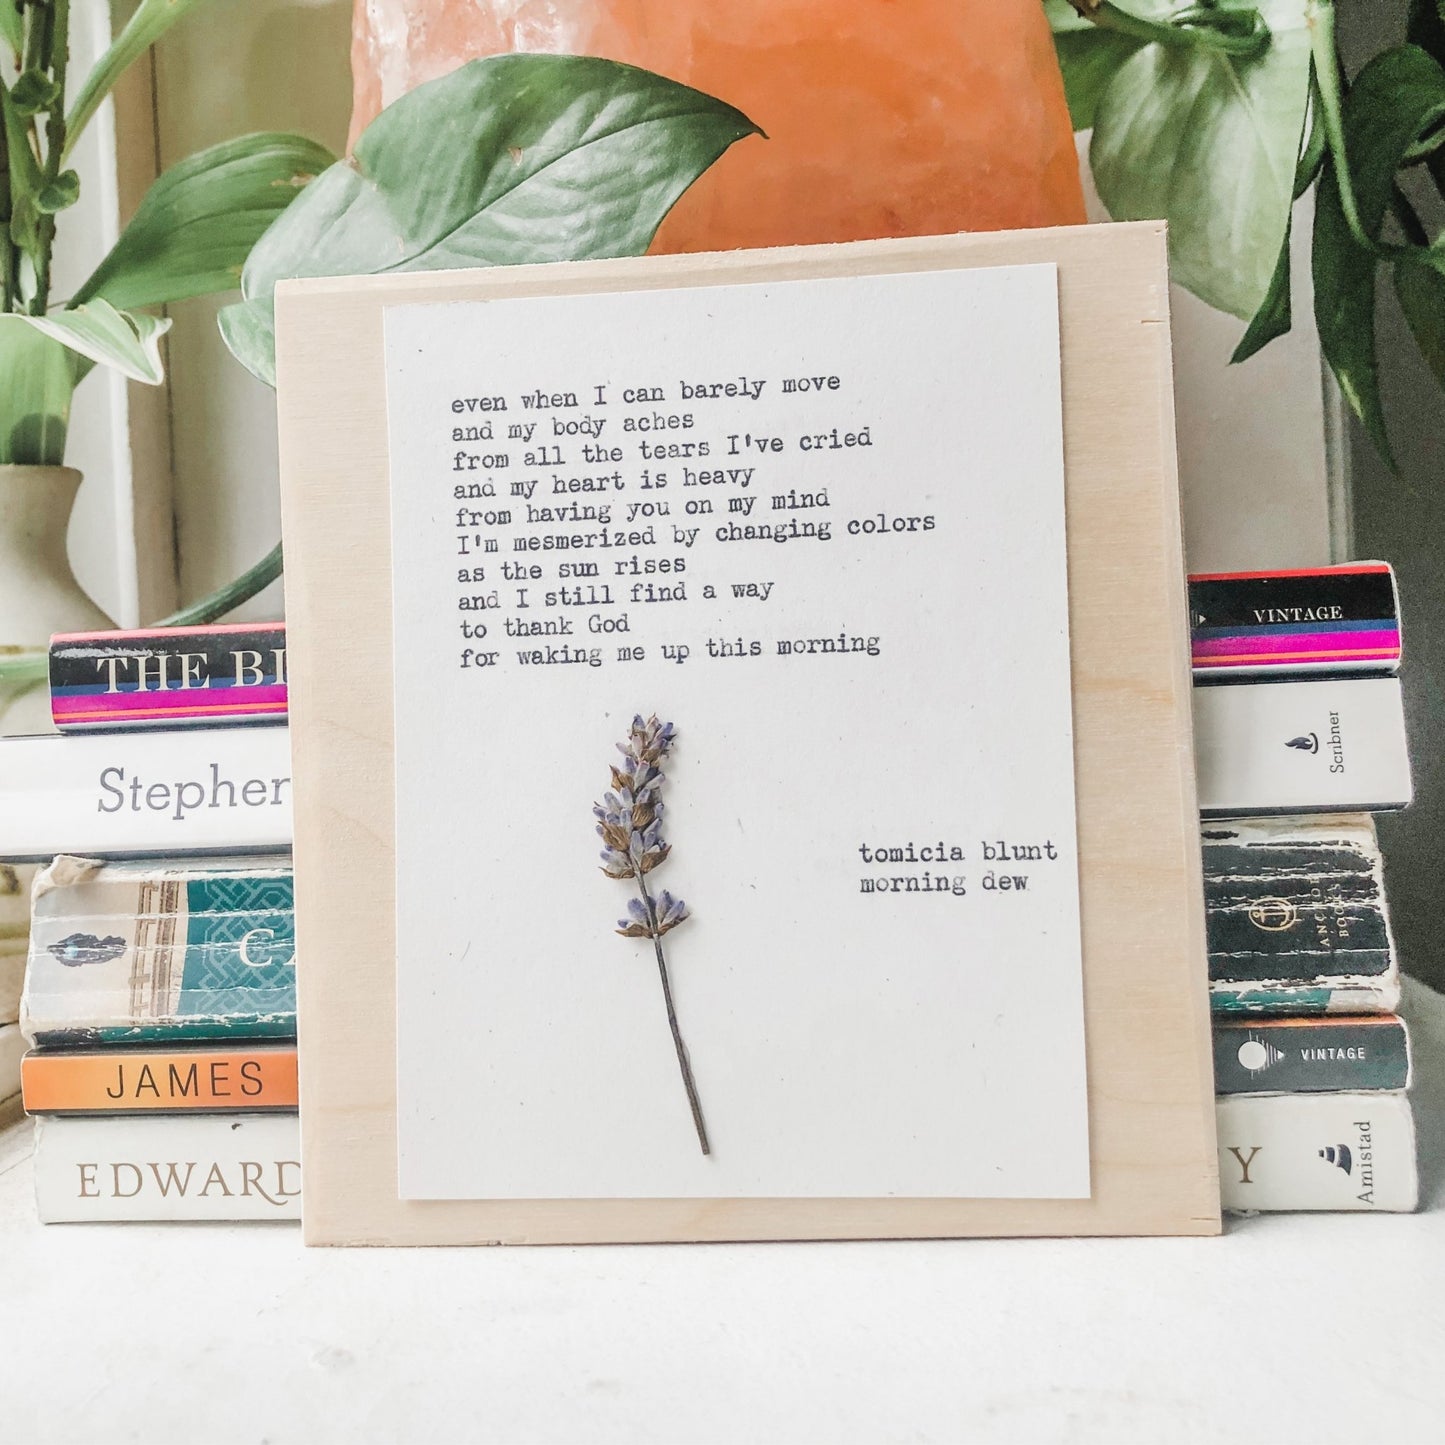 even when I can barely move
and my body aches
from all the tears I've cried
and my heart is heavy
from having you on my mind
I'm mesmerized by changing colors
as the sun rises
and I still find a way
to thank God
for waking me up this morning
tomicia blunt
morning dew
THE
Stephen
JAMES
EDWARD
VINTAGE
Scribner
VINTAGE
Y
Amistad